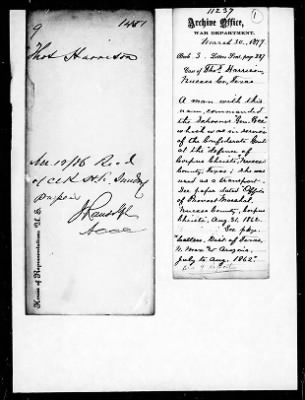 9
14401
Thos Harrison
House of Representatives U.S.
11237
1
Archive Office,
WAR DEPARTMENT.
March 30, 1877
Book 3. Letters Sent, page 287
Case of Thos. Harrison,
Nueces Co, Texas
A man with this
name, commanded
the Schooner "Gen. Bee"
which was in service
of the Confederate Govt
at the defence of
Corpus Christi, Nueces
County, Texas; She was
used as a transport.
See paper dated Office
of Provost Marshal,
Nueces County, Corpus
Christi, Aug 21, 1862.
See pkge.
"Letters, Dist of Texas,
N. Mex & Arizona,
July to Aug. 1862."